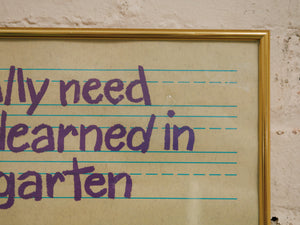 lly need
learned in
garten